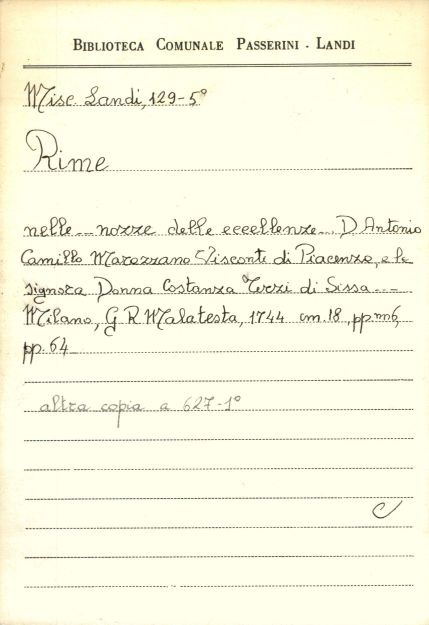 BIBLIOTECA COMUNALE PASSERINI - LANDI
Misc Landi, 129-5°
Rime
nelle -- nozze delle eccellenze... D Antonio
Camillo Marazzano Visconti di Piacenza, e la
signora Donna Costanza Terzi di Sissa ---
Milano, G R Malatesta, 1744 cm. 18, pp nn6,
pp. 64
altra copia a 627-1°
C